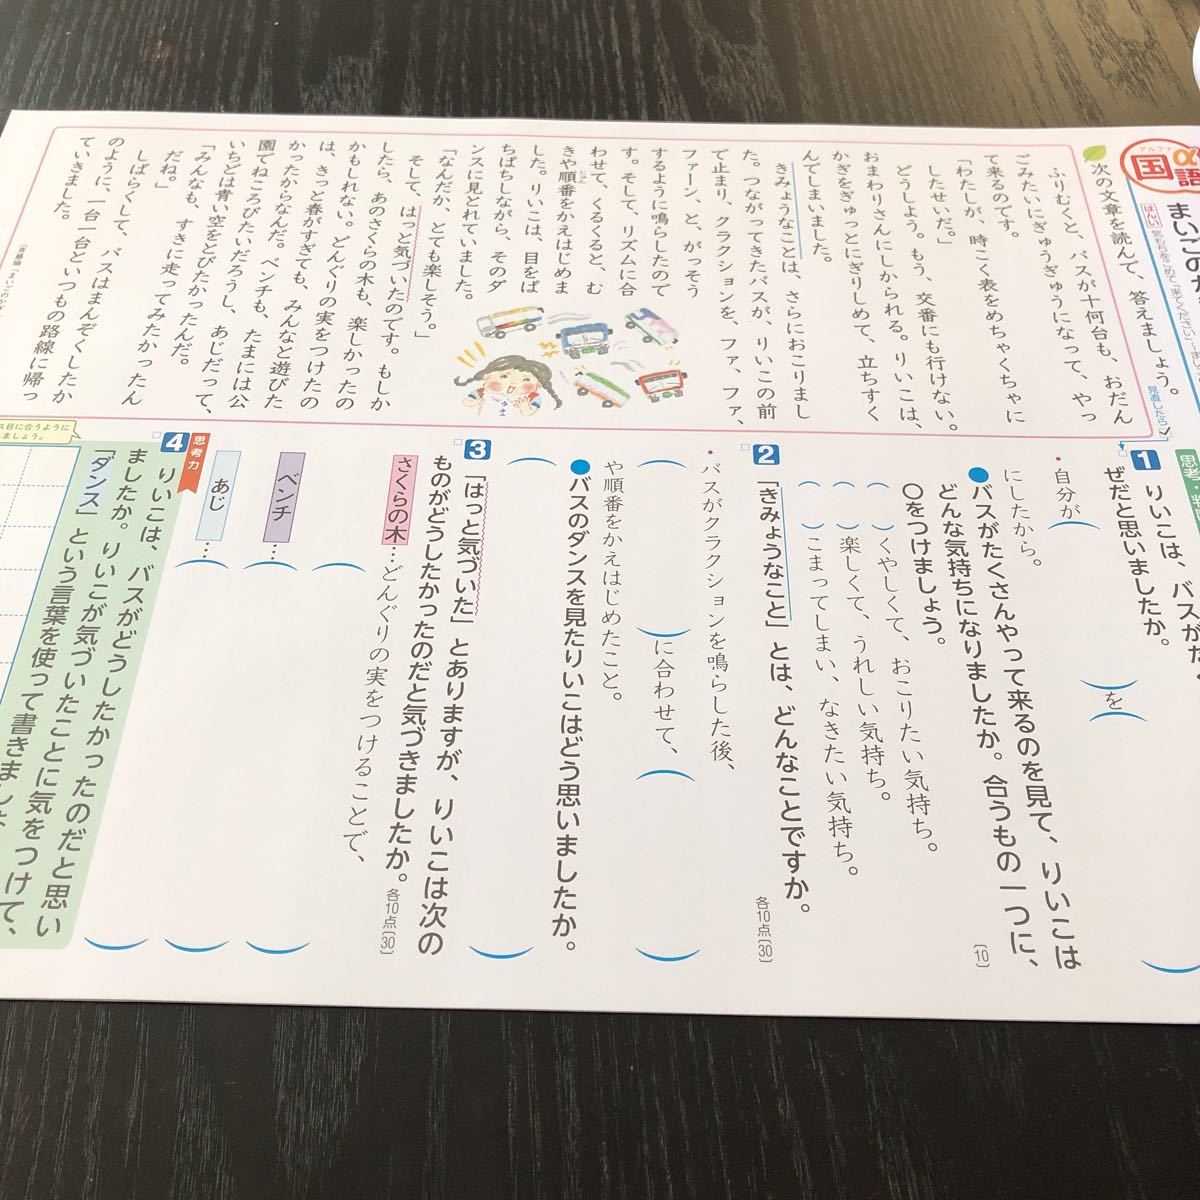 アルファ
α
国語
まいごの
はんい
見直したら
次の文章を読んで、答えましょう。
ふりむくと、バスが十何台も、おだん
ごみたいにぎゅうぎゅうになって、やっ
て来るのです。
「わたしが、時こく表をめちゃくちゃに
したせいだ。」
どうしよう。もう、交番にも行けない。
おまわりさんにしかられる。りいこは、
かぎをぎゅっとにぎりしめて、立ちすく
んでしまいました。
きみょうなことは、さらにおこりまし
た。つながってきたバスが、りいこの前
で止まり、クラクションを、ファ、ファ、
ファーン、と、がっそう
するように鳴らしたので
す。そして、リズムに合
わせて、くるくると、む
きや順番をかえはじめま
じゅん
した。りいこは、目をぱ
ちぱちしながら、そのダ
ンスに見とれていました。
「なんだか、とても楽しそう。」
そして、はっと気づいたのです。もしか
したら、あのさくらの木も、楽しかったの
かもしれない。どんぐりの実をつけたの
は、きっと春がすぎても、みんなと遊びた
かったからなんだ。ベンチも、たまには公
園でねころびたいだろうし、あじだって、
いちどは青い空をとびたかったんだ。
「みんなも、すきに走ってみたかったん
だね。」
しばらくして、バスはまんぞくしたか
のように、一台一台といつもの路線に帰っ
ていきました。
思考・判
1 りいこは、バスがた
ぜだと思いましたか。
・自分が（　）を
にしたから。
●バスがたくさんやって来るのを見て、りいこは
どんな気持ちになりましたか。合うもの一つに、
○をつけましょう。
〔10〕
（　）くやしくて、おこりたい気持ち。
（　）楽しくて、うれしい気持ち。
（　）こまってしまい、なきたい気持ち。
2 「きみょうなこと」とは、どんなことですか。
各10点〔30〕
・バスがクラクションを鳴らした後、
（　）に合わせて、（　）
や順番をかえはじめたこと。
●バスのダンスを見たりいこはどう思いましたか。
（　）
3 「はっと気づいた」とありますが、りいこは次の
ものがどうしたかったのだと気づきましたか。
各10点〔30〕
さくらの木…どんぐりの実をつけることで、
（　）
ベンチ…（　）
あじ…（　）
思考力
4 りいこは、バスがどうしたかったのだと思い
ましたか。りいこが気づいたことに気をつけて、
「ダンス」という言葉を使って書きましょ
ス目に合うように
ましょう。